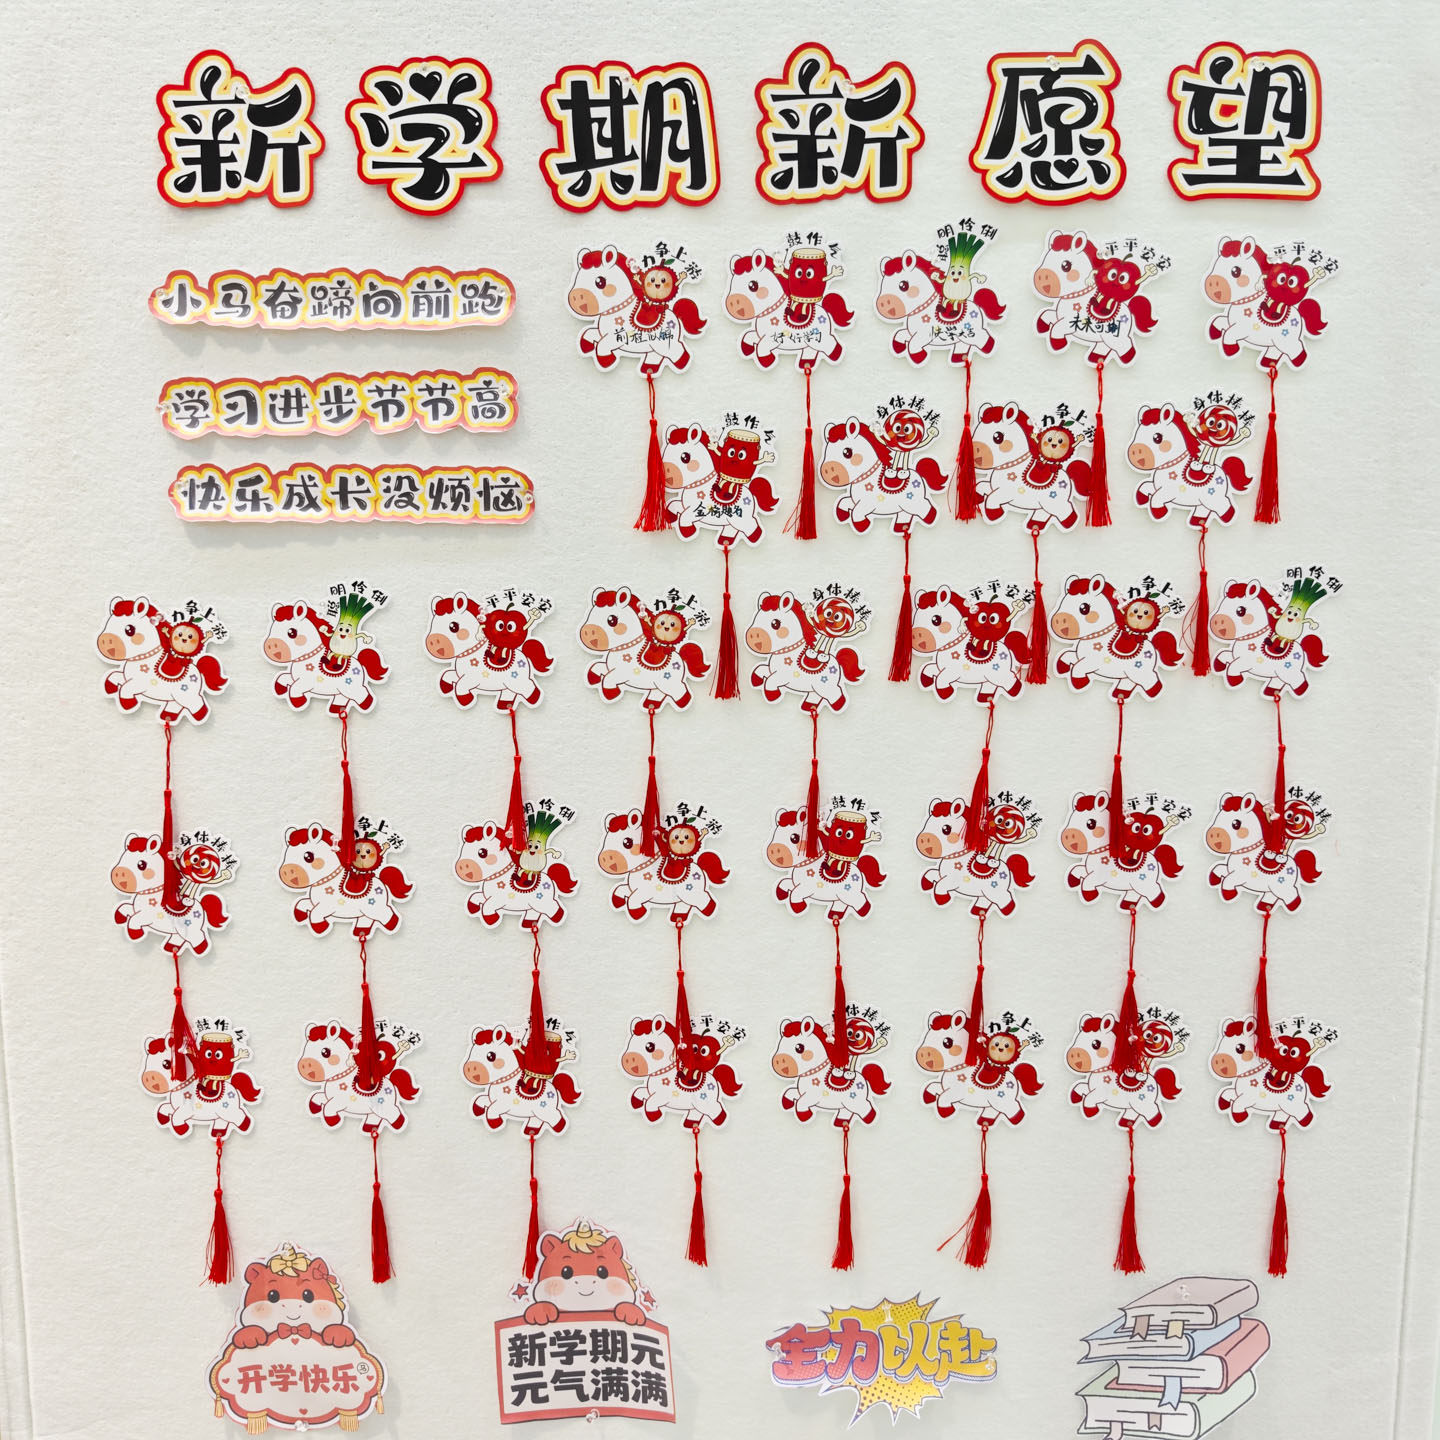 新学期新愿望
小马奋蹄向前跑
学习进步节节高
快乐成长没烦恼
力争上游
前程似锦
鼓作气
好好学习
聪明伶俐
平平安安
未来可期
平平安安
鼓作气
金榜题名
身体棒棒
力争上游
身体棒棒
力争上游
聪明伶俐
平平安安
力争上游
身体棒棒
平平安安
力争上游
聪明伶俐
身体棒棒
争上游
明伶俐
力争上游
鼓作气
身体棒棒
平平安安
体棒棒
鼓作气
平平安安
鼓作
平平安安
身体棒棒
力争上游
身体棒棒
平平安安
开学快乐
马
新学期元
元气满满
全力以赴